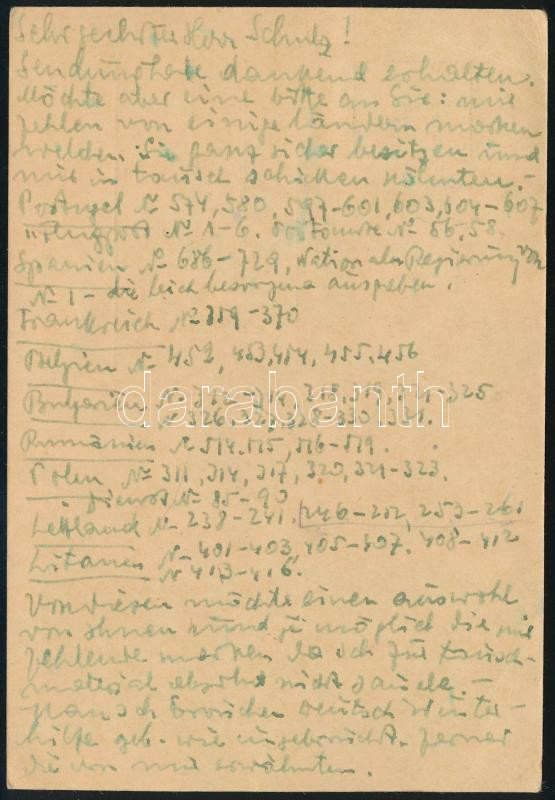 Sehr geehrter Herr Schulz!
Sendung habe dankend erhalten.
Möchte aber eine bitte an Sie: mir
fehlen von einige ländern marken
welchen Sie ganz sicher besitzen und
mir in tausch schicken könnten.-
Portugal No 574, 580, 597-601, 603, 604-607
" Flugpost No 1-6. No 56, 58.
Spanien No 686-729, Nationalen Regierung von
No 1 - die ausgeben.
Frankreich No 359-370
Belgien No 452, 453, 454, 455, 456
Bulgarien No
No 326, 328-330, 331.
Rumänien No 514, 515, 516-519.
Polen No 311, 314, 317, 320, 321-323.
Dienst No 85-90
Lettland No 238-241. 246-252, 253-261
Litauen No 401-403, 405-407. 408-412
No 413-416.
Von diesen möchte einen auswahl
von ihnen und je möglich die mir
fehlende marken da ich für tausch-
material nicht
deutsch Winter-
hilfe geb. wie ferner
die von mir erwähnten.
darabanth